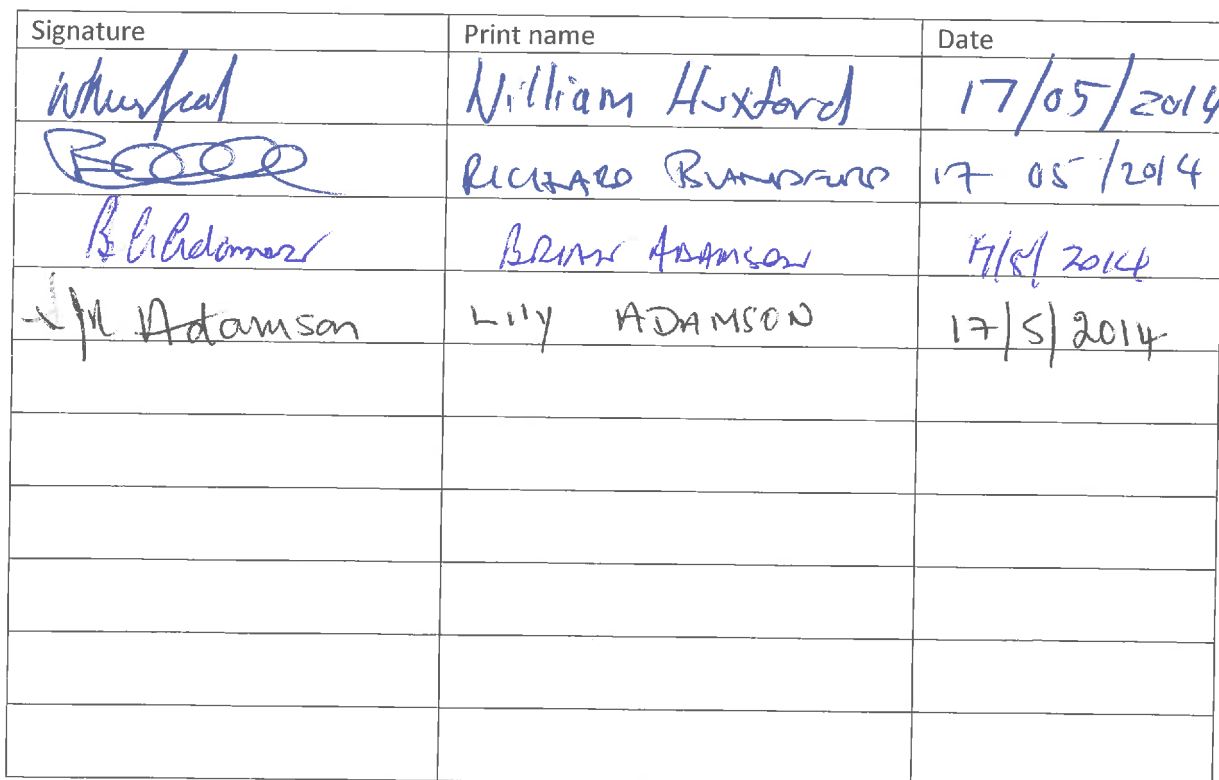 Signature Print name Date
William Huxford 17/05/2014
RICHARD BLANDFORD 17 05/2014
B A Adamson BRIAN ADAMSON 17/5/2014
Adamson Lily ADAMSON 17/5/2014